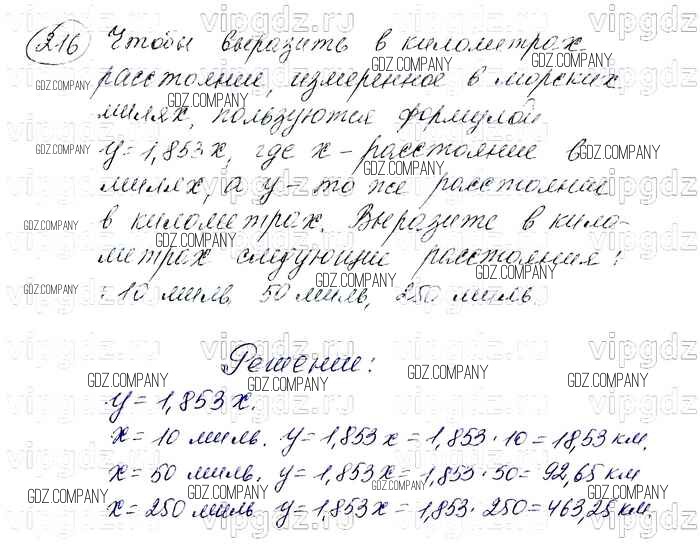 216 Чтобы выразить в километрах
расстояние, измеренное в морских
милях, пользуются формулой
y = 1,853x, где x - расстояние в
милях, а y - то же расстояние
в километрах. Выразите в кило-
метрах следующие расстояния:
: 10 миль, 50 миль, 250 миль.
Решение:
y = 1,853x.
x = 10 миль. y = 1,853x = 1,853 · 10 = 18,53 км.
x = 50 миль, y = 1,853x = 1,853 · 50 = 92,65 км
x = 250 миль y = 1,853x = 1,853 · 250 = 463,25 км.
GDZ.COMPANY
vipgdz
vipgdz.ru